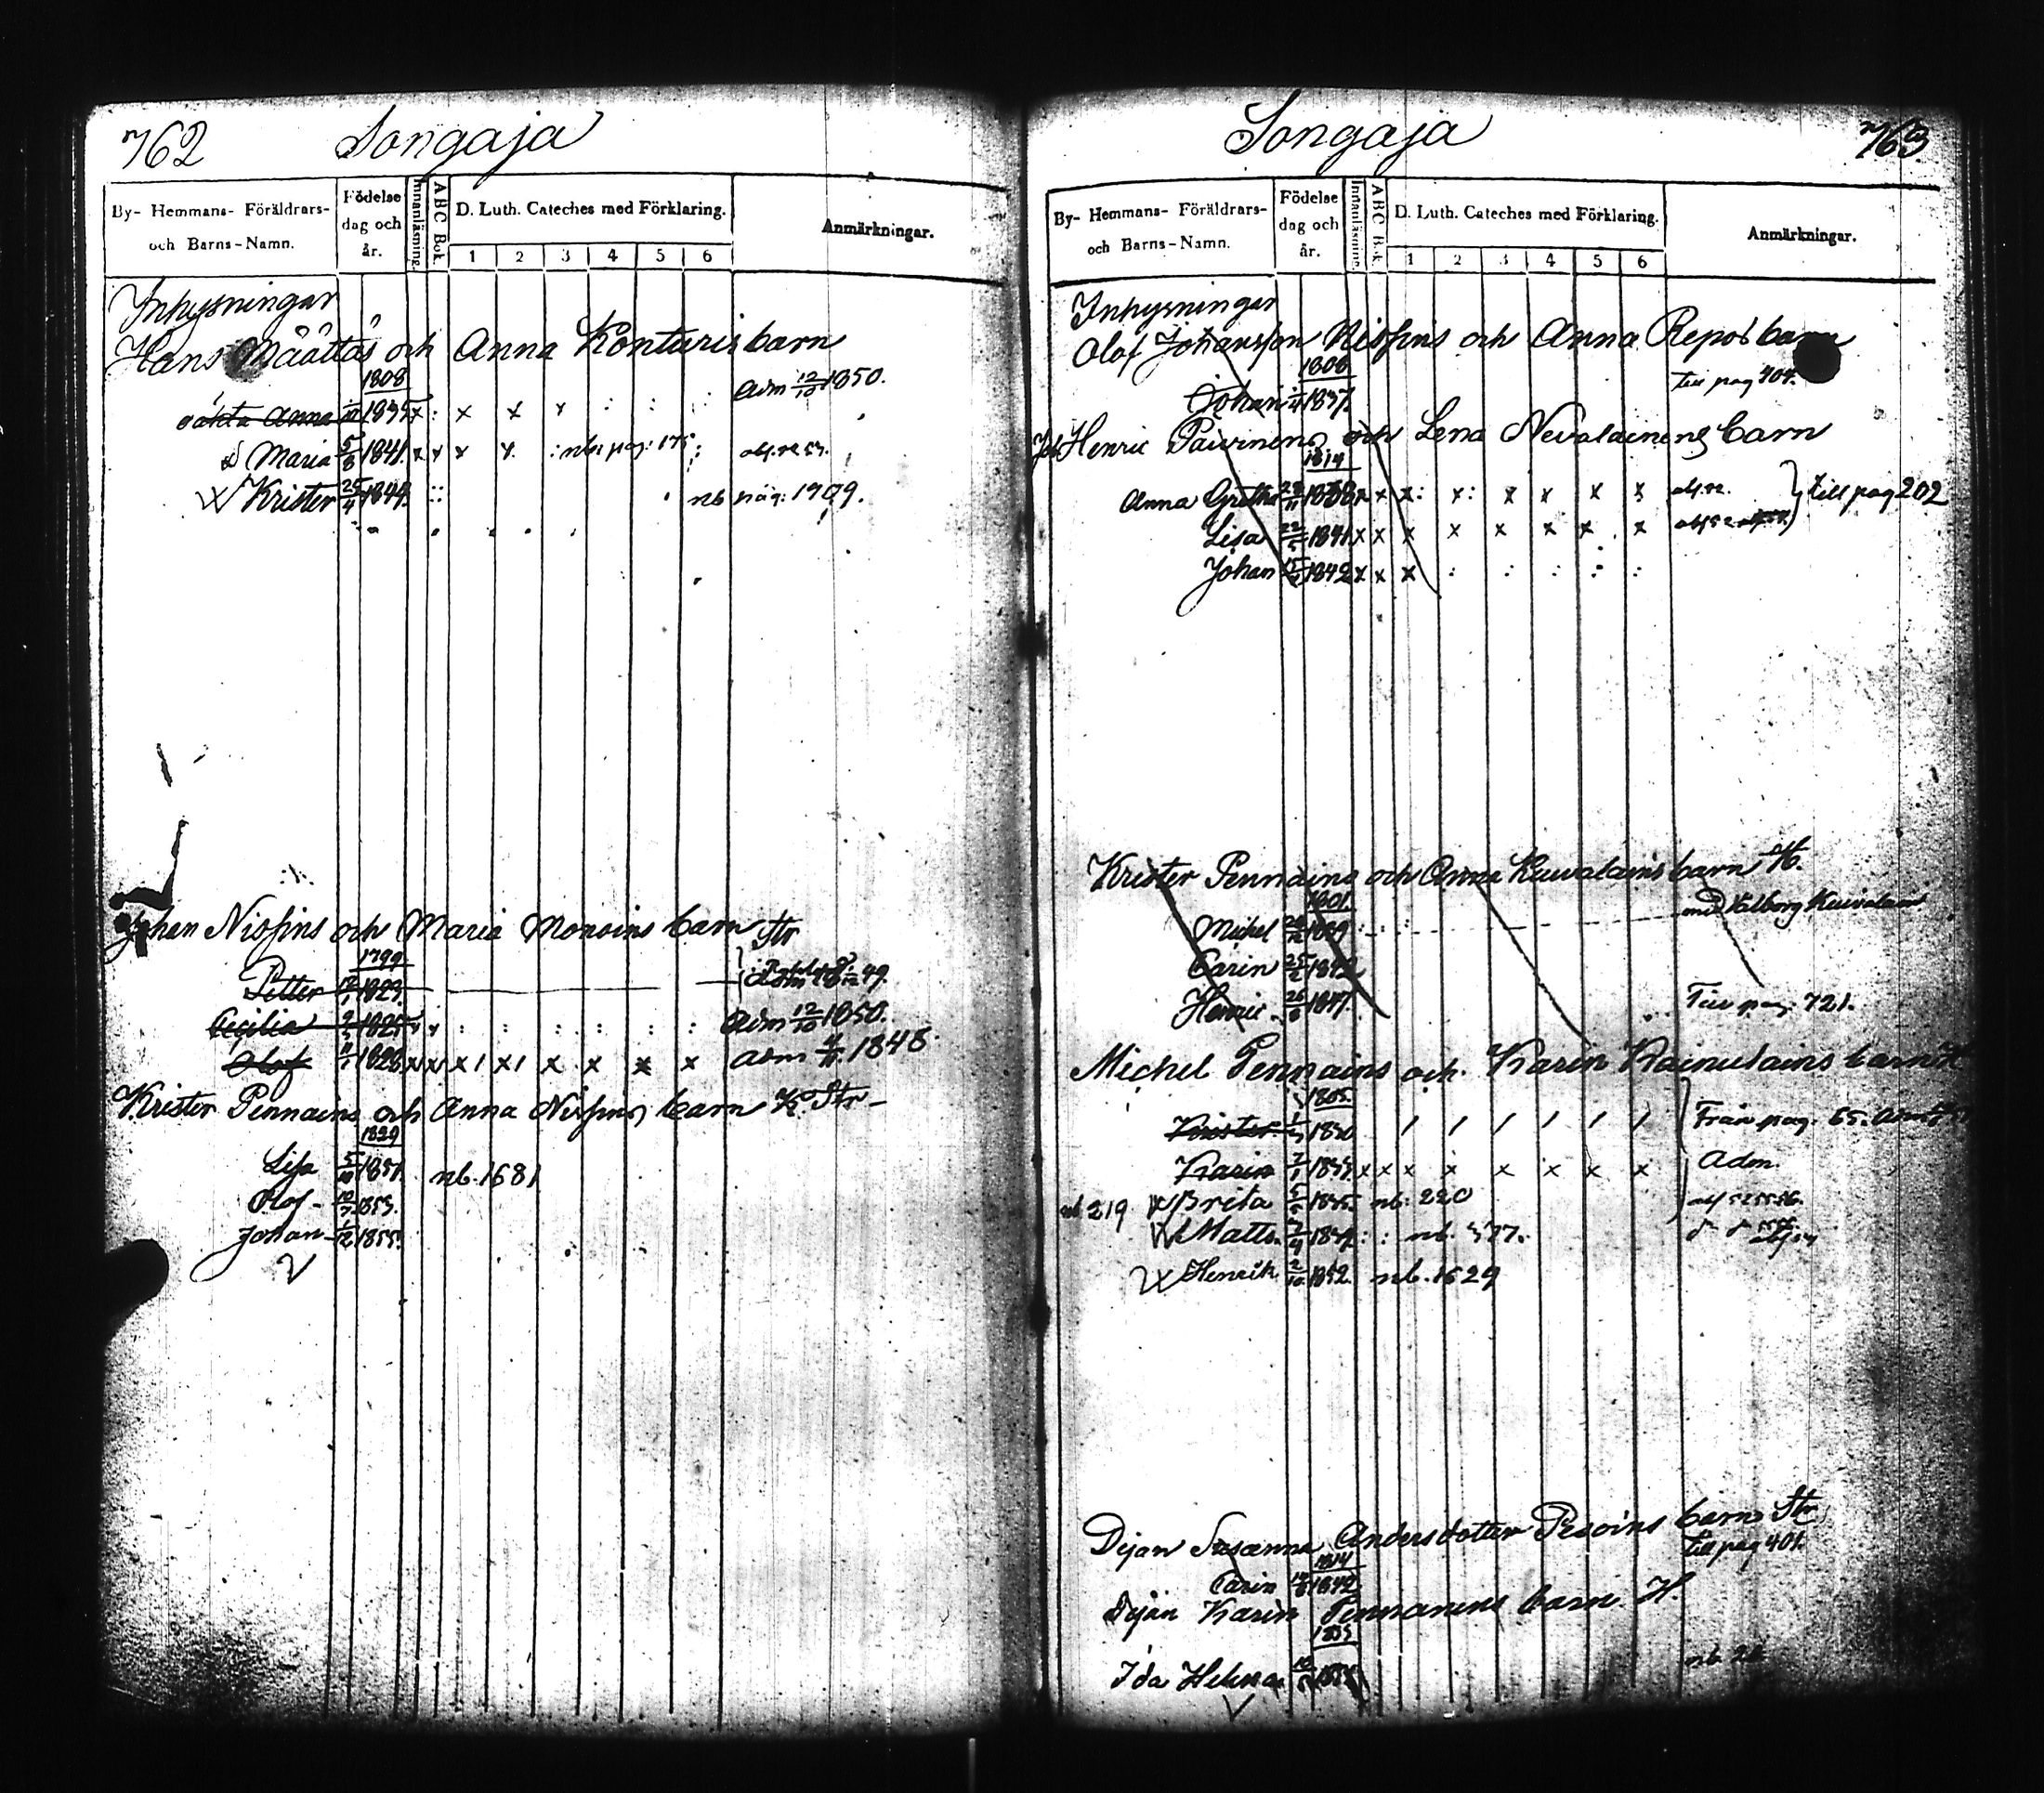 762 Songaja
By- Hemmans- Föräldrars- och Barns-Namn. Födelse dag och år. Innanläsning. ABC Bok. D. Luth. Cateches med Förklaring. 1 2 3 4 5 6 Anmärkningar.
Inhysningar
Hans Määttäs och Anna Konturis barn
1808
Anna 1835 x : x x x : : : adm 12/10 1850.
Maria 5/8 1841. x x x x : nb. pag: 175 :
Krister 25/4 1849. nb pag: 1709.
Johan Nissins och Maria Monoins barn Str
1799
Petter 1823. 49.
Cecilia 1825 x x : : : : : : Adm 12/10 1850.
Olof 1828 x x x x x x x x adm 1848.
Krister Pennains och Anna Nissins barn K. Str-
1829
Lisa 5/10 1851. nb. 1681
Olof - 10/7 1853.
Johan - 1/12 1855.
Songaja 763
By- Hemmans- Föräldrars- och Barns-Namn. Födelse dag och år. Innanläsning. ABC Bok. D. Luth. Cateches med Förklaring. 1 2 3 4 5 6 Anmärkningar.
Inhysningar
Olof Johansson Nissins och Anna Repos barn
1808 till pag 404.
Johan 1837.
Henric Päivinens och Lena Nevalainens barn
1814
Anna Gretha 1838 x x x : x : x x x x till pag 202
Lisa 22/5 1841 x x x x x x x x
Johan 1842 x x x : : : : :
Krister Pennains och Anna Kuivalains barn H.
1801. med Valborg Kuivalain
Michel 1839
Carin 25/2 1842
Henric 26/6 1847. Till pag. 721.
Michel Pennains och Karin Kainulains barn
1805.
Krister 1830 / / / / / / Från pag. 65.
Karin 1833 x x x x x x x x Adm.
nb 219 Breta 1835 nb: 220
Matts. 7/4 : : nb. 577.
Henrik 2/10 1852. nb. 1629
Pijan Susanna Andersdotter Pesoins barn Str
1814 till pag 401.
Carin 1842
Pijan Karin Pennanens barn H.
Ida Helena